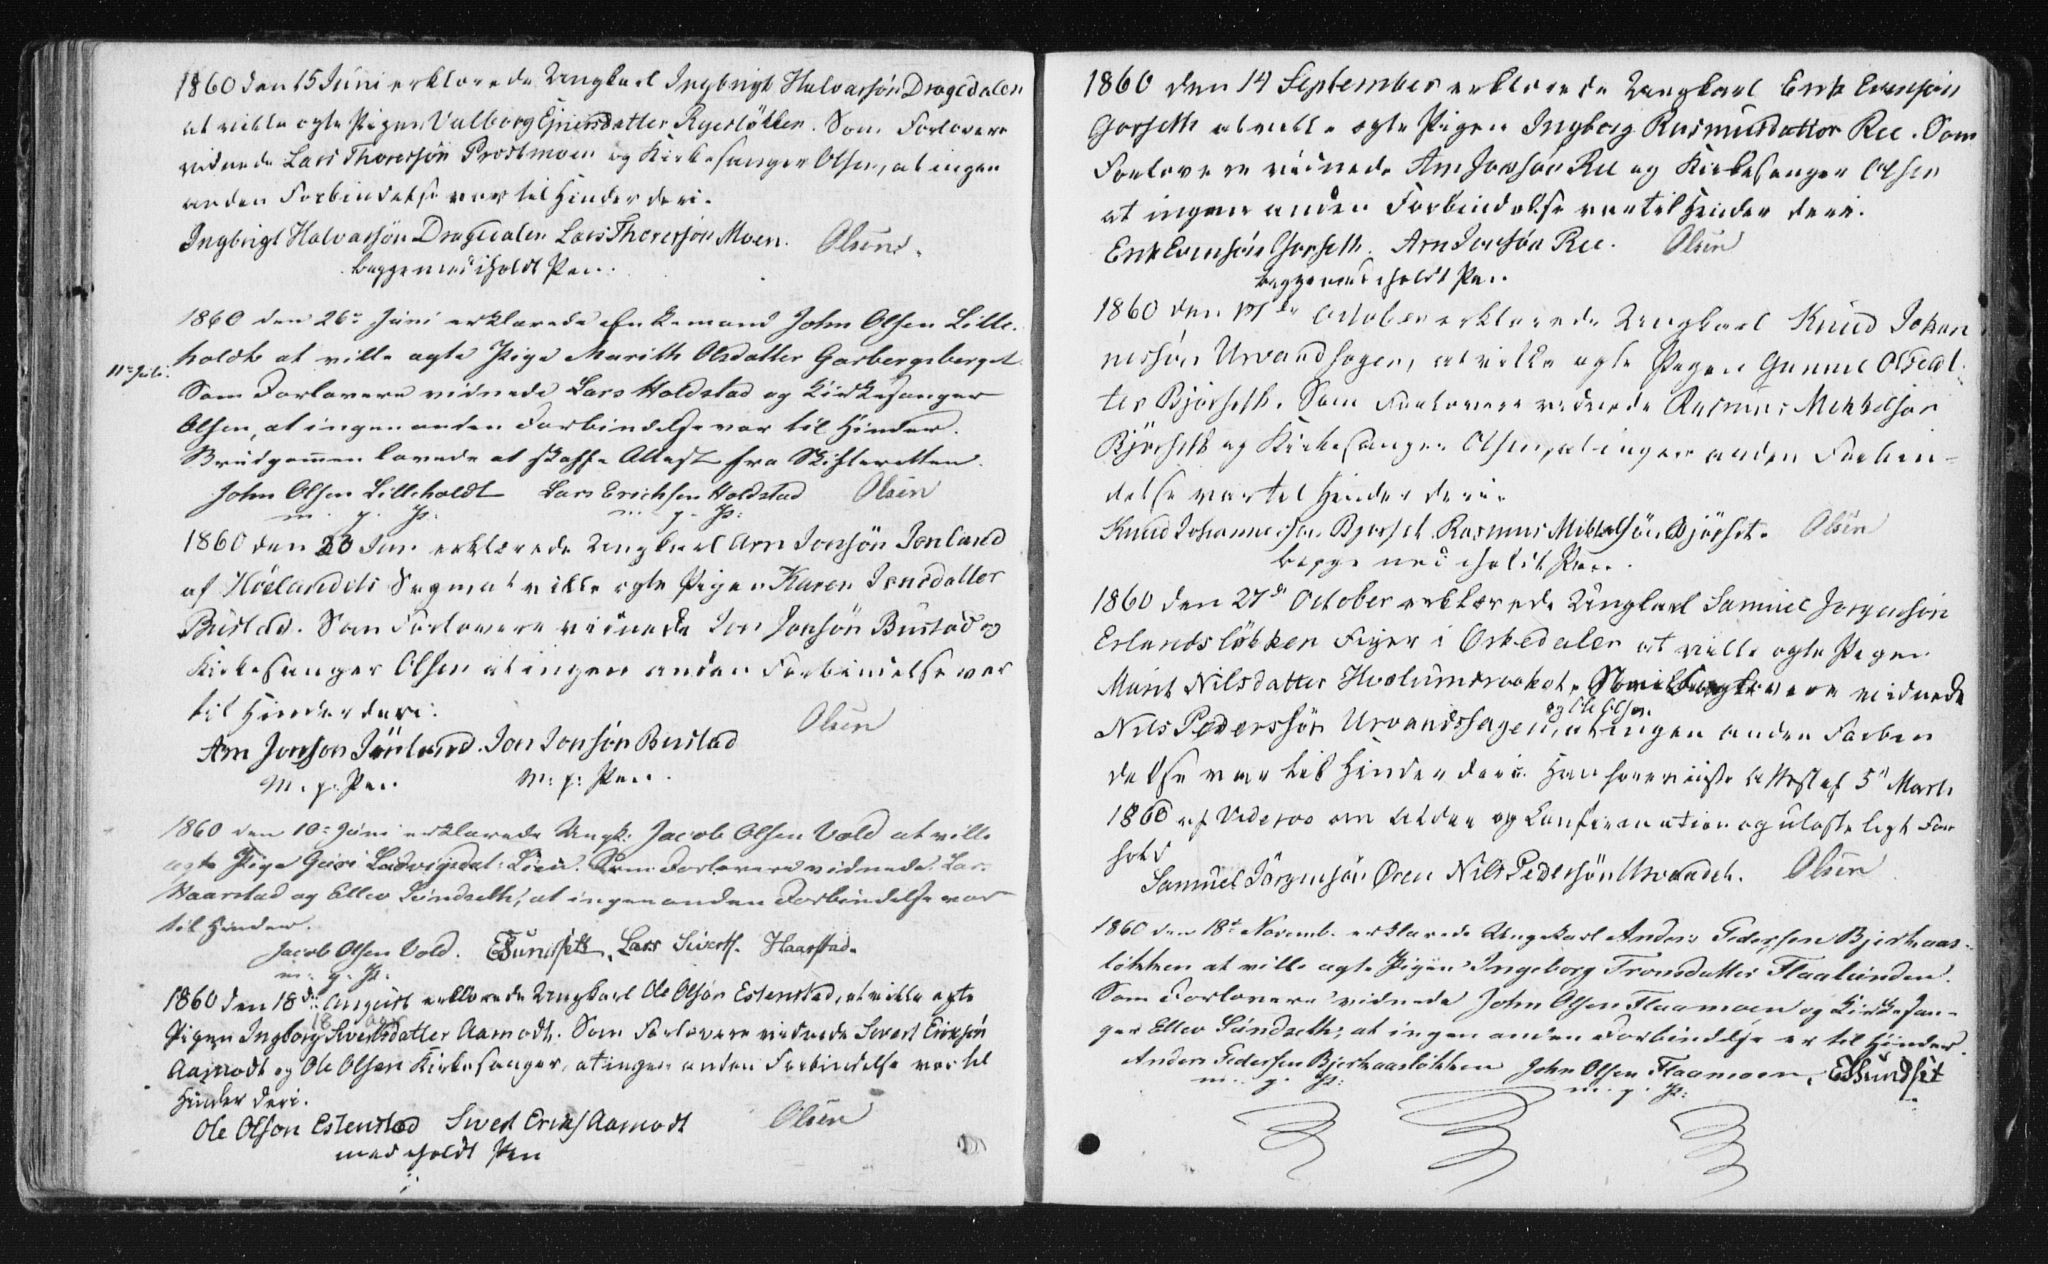 1860 den 15 Juni erklærede Ungkarl Ingbrigt Halvarsön Dragedalen
at ville ægte Pigen Valborg Ejnersdatter Ryesløkken. Som Forlovere
vidnede Lars Thoresön Prostmoen og Kirkesanger Olsen, at ingen
anden Forbindelse var til Hinder deri.
Ingbrigt Halvarsön Dragedalen Lars Thoresön Moen. Olsen.
begge med iholdt Pen.
1860 den 26de Juni erklærede Enkemand John Olsen Lille-
holdt at ville ægte Pige Marith Olsdatter Garbergsberget
11te Juli.
Som Forlovere vidnede Lars Holdstad og Kirkesanger
Olsen, at ingen anden Forbindelse var til Hinder.
Brudgommen lovede at skaffe Attest fra Skifteretten.
John Olsen Lilleholdt Lars Erichsen Holdstad Olsen
m. p. P: m. p. P:
1860 den 20 Jun erklærede Ungkarl Arn Jonsön Jonland
af Höelandets Sogn at ville ægte Pigen Karen Jensdatter
Bustad. Som Forlovere vidnede Jon Jonsön Bustad og
Kirkesanger Olsen at ingen anden Forbindelse var
til Hinder deri.
Arn Jonson Jönland. Jon Jonsön Bustad Olsen
M. p. Pen. M. p. Pen.
1860 den 10de Juni erklærede Ungk: Jacob Olsen Vold at ville
ægte Pige Guri Ludvigsdat: Lien. Som Forlovere vidnede Lars
Haarstad og Ellev Sundseth, at ingen anden Forbindelse var
til Hinder.
Jacob Olsen Vold. ESundseth, Lars Siverts. Haarstad.
m. p. P:
1860 den 18de August erklærede Ungkarl Ole Olsön Estenstad, at ville ægte
Pigen Ingborg Sivertsdatter Aamodt. Som Forlovere vidnede Sivert Eriksön
Aamodt og Ole Olsen Kirkesanger, at ingen anden Forbindelse var til
Hinder deri.
Ole Olson Estenstad Sivert Eriks Aamodt Olsen
med iholdt Pen
1860 den 14 September erklærede Ungkarl Erik Evensön
Gorseth at ville ægte Pigen Ingborg Rasmusdatter Ree. Som
Forlovere vidnede Arn Jonsön Ree og Kirkesanger Olsen
at ingen anden Forbindelse var til Hinder deri.
Erik Evensön Gorseth. Arn Jonsön Ree. Olsen
begge med iholdt Pen.
1860 den 17de October erklærede Ungkarl Knud Johan
nessön Urvandhagen, at ville ægte Pigen Gunnel Olsdat-
ter Bjørseth. Som Forlovere vidnede Rasmus Mikkelsön
Bjørseth og Kirkesanger Olsen, at ingen anden Forbin-
delse var til Hinder deri.
Knud Johannesson Bjorset Rasmus Mikkelsön Bjørset. Olsen
begge med iholdt Pen.
1860 den 27de October erklærede Ungkarl Samuel Jørgensön
Erlandsløkken Eiger i Orkedalen at ville ægte Pigen
Marit Nilsdatter Hvelumsvoldet. Som Forlovere vidnede
og Ole Olsen
Nils Pederssön Urvandshagen, at ingen anden Forbin
delse var til Hinder deri. Han foreviiste Attest af 5te Marts
1860 af Videroe om Alder og Confirmation og ulasteligt For
hold
Samuel Jörgensön Øren Nils Pedersön Urvandet. Olsen
1860 den 18de Novemb. erklærede Ungekarl Anders Pedersen Bjerkaas-
løkken at ville ægte Pigen Ingeborg Tronsdatter Flaalunden.
Som Forlovere vidnede John Olsen Flaamoen og Kirkesan-
ger Ellev Sundseth, at ingen anden Forbindelse er til Hinder.
Anders Pedersen Bjerkaasløkken John Olsen Flaamoen, ESundset
m. p. P: m. p. P: